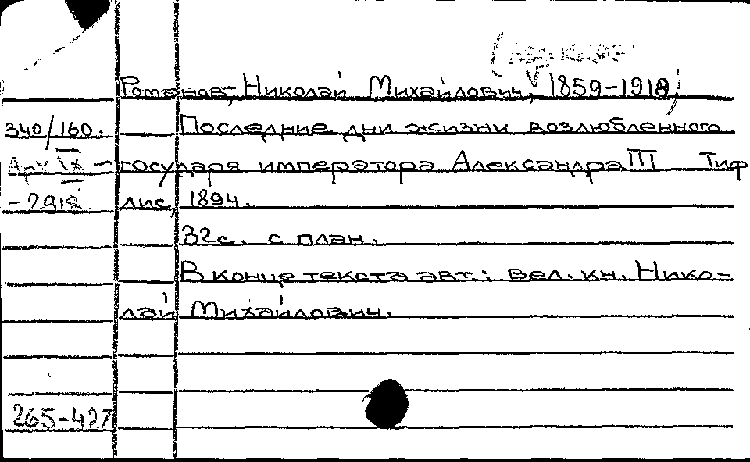 Романов, Николай Михайлович, 1859-1918
340/160. Последние дни жизни возлюбленного
государя императора Александра III Тиф
-2918 лис, 1894.
32с. с план.
В конце текста авт.: вел. кн. Нико-
лай Михайлович.
265-427